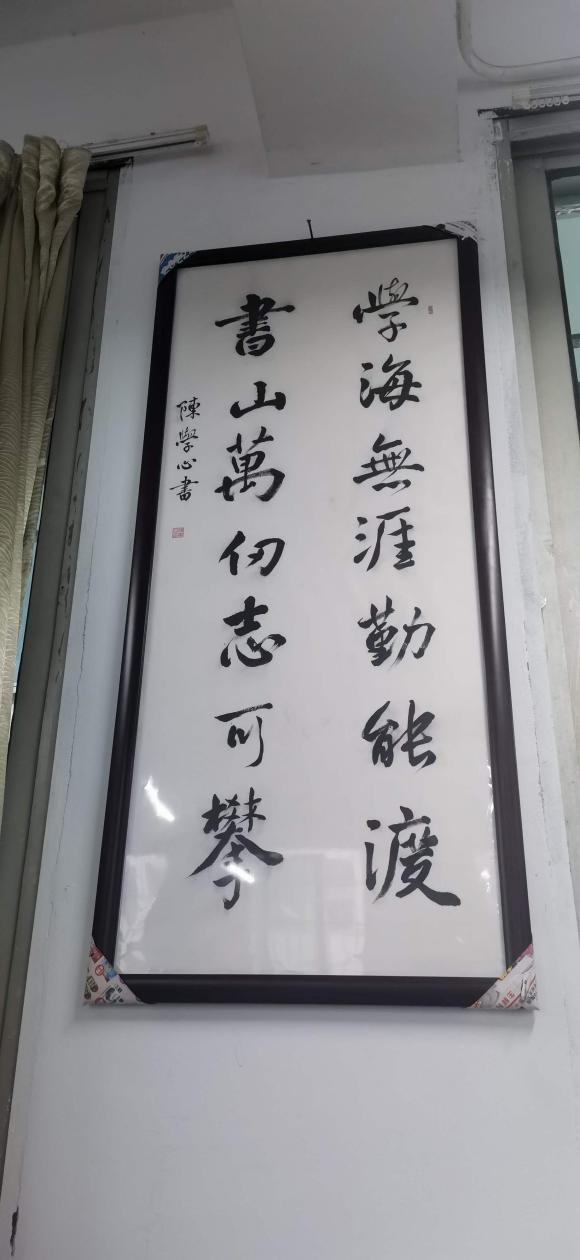 學海無涯勤能渡
書山萬仞志可攀
陳學心書